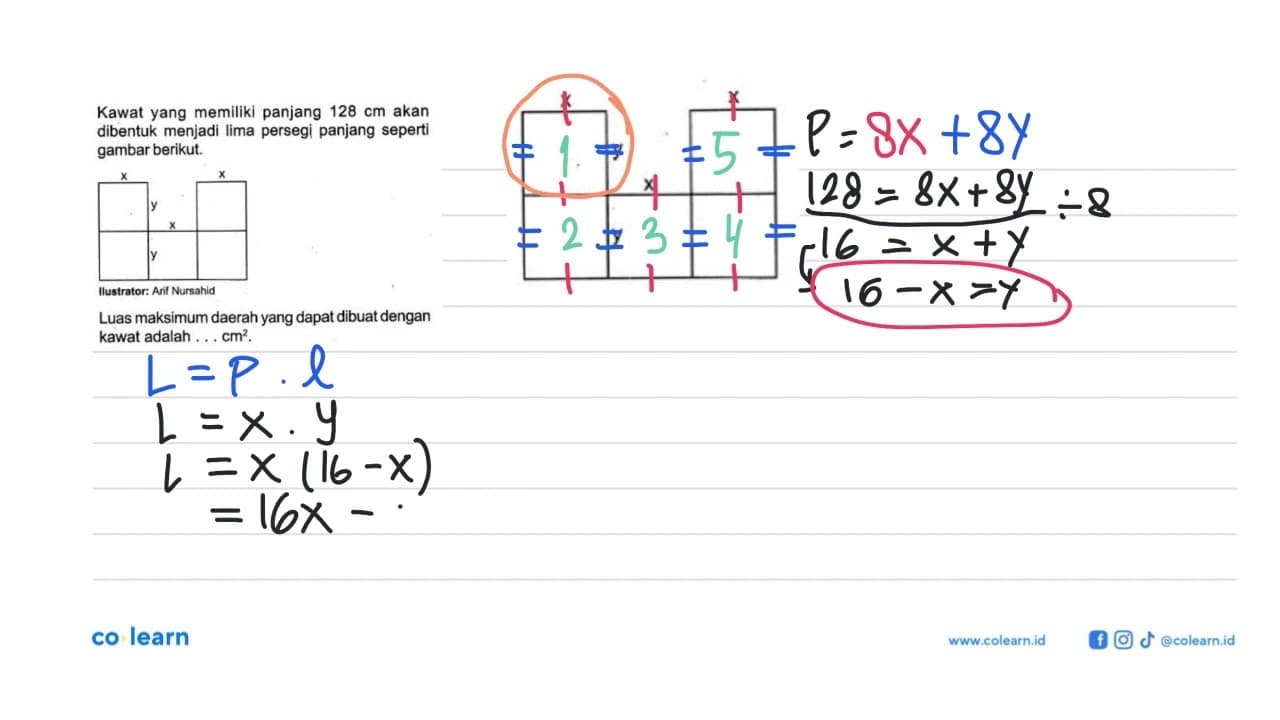 Kawat yang memiliki panjang 128 cm akan
dibentuk menjadi lima persegi panjang seperti
gambar berikut.
x x
y
x
y
Ilustrator: Arif Nursahid
Luas maksimum daerah yang dapat dibuat dengan
kawat adalah . . . cm².
L = P . l
L = x . y
L = x (16 - x)
= 16x -
x x
= 1 = y = 5 =
x
= 2 = y 3 = 4 =
P = 8x + 8y
128 = 8x + 8y ÷ 8
16 = x + y
16 - x = y
co learn
www.colearn.id
@colearn.id